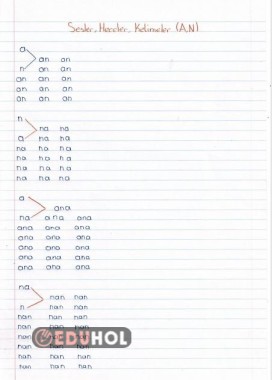 Sesler, Heceler, Kelimeler (A,N)
a
an an
n an an
an an an
an an an
an an an
n
na na
a na na
na na na
na na na
na na na
na na na
a
ana
na ana ana
ana ana ana
ana ana ana
ana ana ana
ana ana ana
ana ana ana
na
nan nan
n nan nan
nan nan nan
nan
EDUHOL
nan nan nan
nan nan nan
nan nan nan